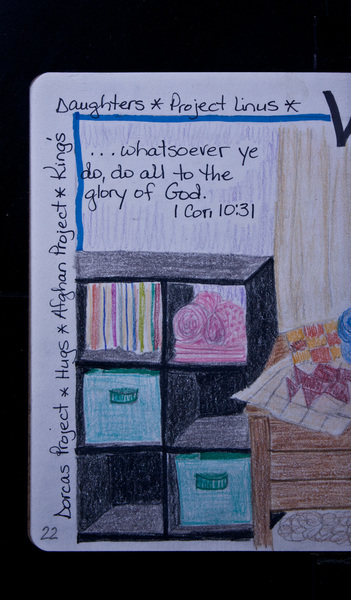 Dorcas Project * Hugs * Afghan Project * King's
Daughters * Project Linus *
...whatsoever ye
do, do all to the
glory of God.
1 Cor. 10:31
22